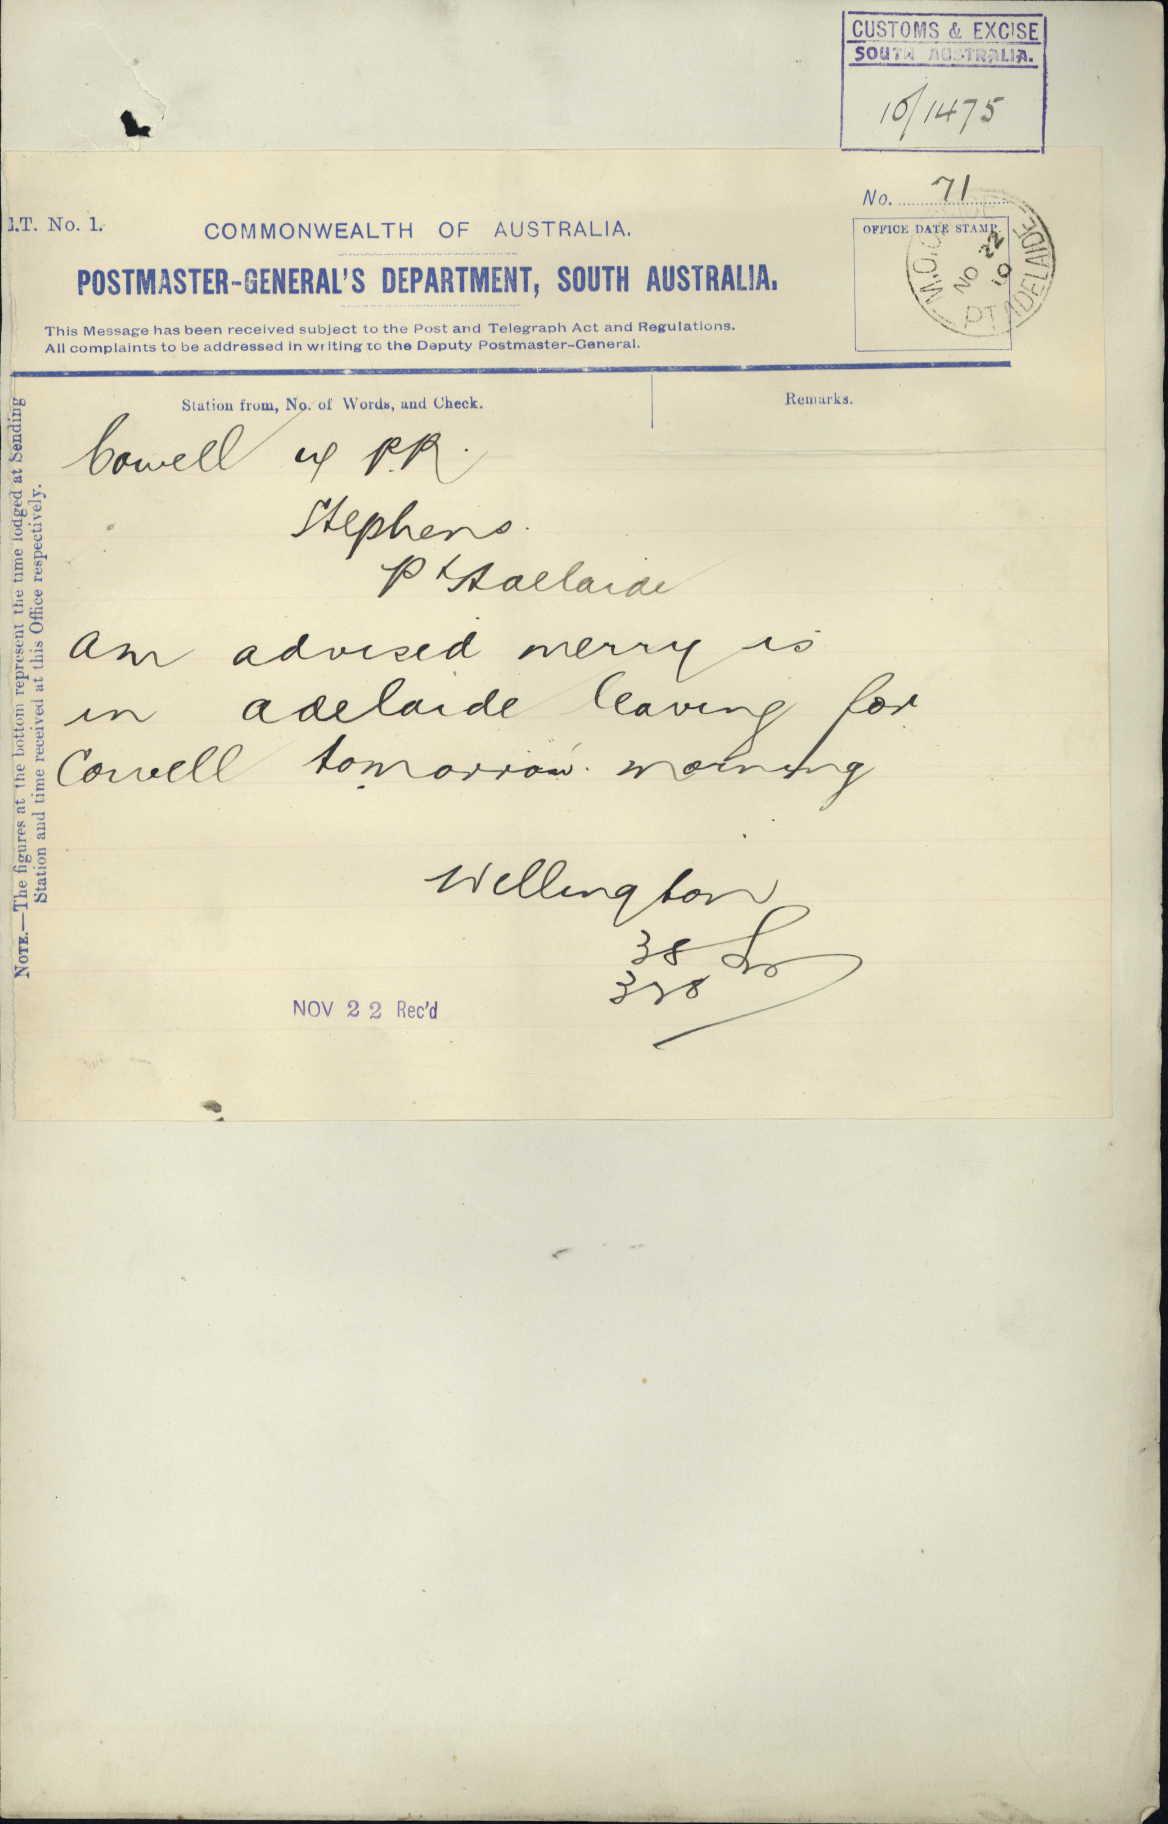 CUSTOMS & EXCISE
SOUTH AUSTRALIA.
10/1475
No. 71
G.T. No. 1.
COMMONWEALTH OF AUSTRALIA.
OFFICE DATE STAMP.
M.O.O.
NO 22
10
PT ADELAIDE
POSTMASTER-GENERAL'S DEPARTMENT, SOUTH AUSTRALIA.
This Message has been received subject to the Post and Telegraph Act and Regulations.
All complaints to be addressed in writing to the Deputy Postmaster-General.
Station from, No. of Words, and Check.
Remarks.
Cowell P.R.
Stephens.
Pt Adelaide
am advised merry is
in adelaide leaving for
Cowell tomorrow morning
Wellington
38
328
NOV 22 Rec'd
NOTE.—The figures at the bottom represent the time lodged at Sending
Station and time received at this Office respectively.